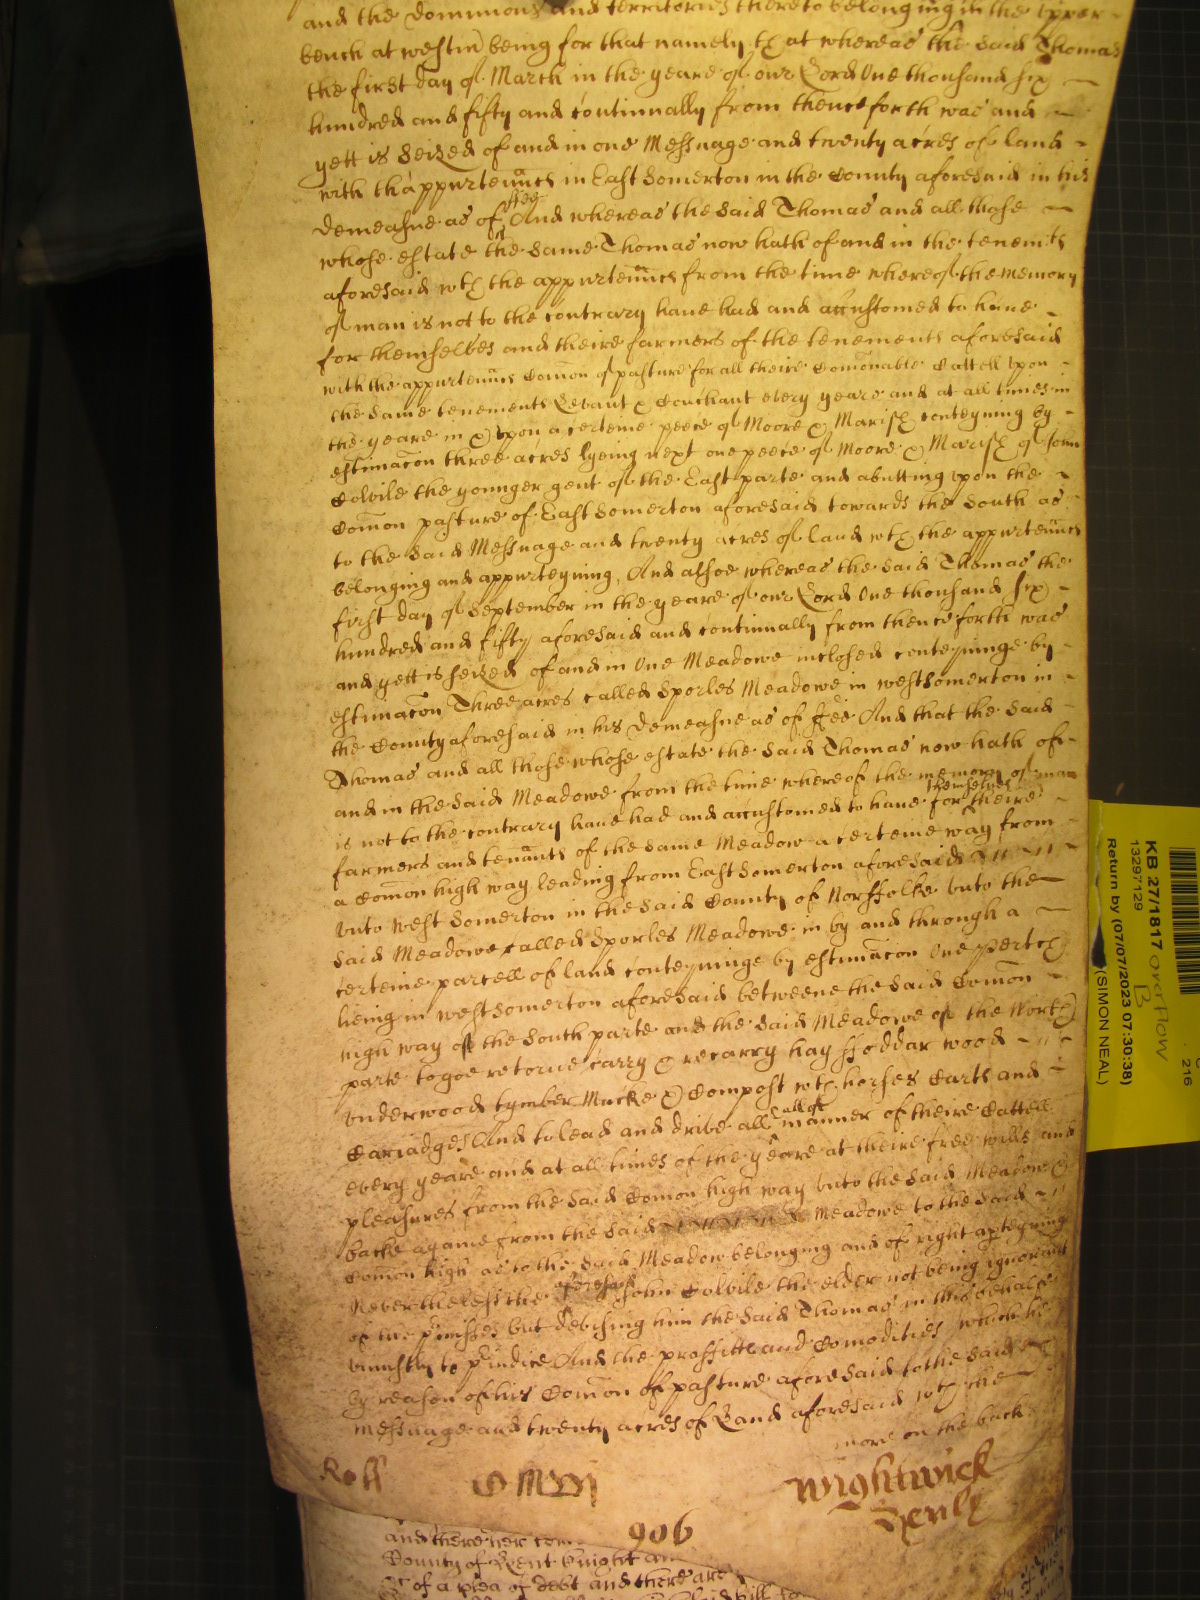 and the dominions and territories thereto belonging in the upper
bench at westm) being for that namely tx at whereas the said Thomas
the first day of March in the yeare of our Lord One thousand six
hundred and fifty and continually from thenceforth was and
yett is seized of and in one Messuage and twenty acres of land
with thappurtenncs in East Somerton in the County aforesaid in his
demeasne as of ffee And whereas the said Thomas and all those
whose estate the same Thomas now hath of and in the tenemts
aforesaid wth the appurtenncs from the time whereof the memory
of man is not to the contrary haue had and accustomed to haue
for themselves and theire farmers of the tenements aforesaid
with the appurtenncs Comon of pasture for all theire Comonable Cattell upon
the same tenements Levant & Couchant every yeare and at all times in
the yeare in & upon a certeine peece of Moore & Marish conteyning by
estimacon three acres lyeing next one peece of Moore & Marish of John
Colvile the younger gent of the East parte and abutting upon the
Comon pasture of East Somerton aforesaid towards the South as
to the said Messuage and twenty acres of land wth the appurtenncs
belonging and appurteyning, And alsoe whereas the said Thomas the
first day of September in the yeare of our Lord One thousand six
hundred and fifty aforesaid and continually from thenceforth was
and yett is seized of and in One Meadowe inclosed conteyninge by
estimacon Three acres called Sporles Meadowe in westsomerton in
the County aforesaid in his demeasne as of ffee And that the said
Thomas and all those whose estate the said Thomas now hath of
and in the said Meadowe from the time whereof the memory of man
is not to the contrary haue had and accustomed to haue for themselves theire
farmers and tennts of the same Meadow a certeine way from
a Comon high way leading from East Somerton aforesaid
vnto West Somerton in the said County of Norffolke vnto the
said Meadowe called Sporles Meadowe in by and through a
certeine parcell of land conteyninge by estimacon One perch
lieing in westsomerton aforesaid betweene the said Comon
high way of the South parte and the said Meadowe of the North
parte to goe retorne carry & recarry hay ffoddar wood
vnderwood tymber Mucke & Compost wth horses Carts and
Cariadges And to lead and drive all & all other manner of theire Cattell
every yeare and at all times of the yeare at theire free wills and
pleasures from the said Comon high way vnto the said Meadow &
backe againe from the said Meadowe to the said
Comon high as to the said Meadow belonging and of right apteyning
Neverthelesse the aforesaid John Colvile the elder not being ignorant
of the pmisses but devising him the said Thomas in this behalfe
vniustly to piudice And the proffitte and Comodities which he
by reason of his Comon of pasture aforesaid to the said
messuage and twenty acres of Land aforesaid wth the
more on the back
Roll
Wightwick
906
and there
County of Kent knight an
of a plea of debt and there are
KB 27/1817 overflow
B
13297129
Return by (07/07/2023 07:30:38)
(SIMON NEAL)
216